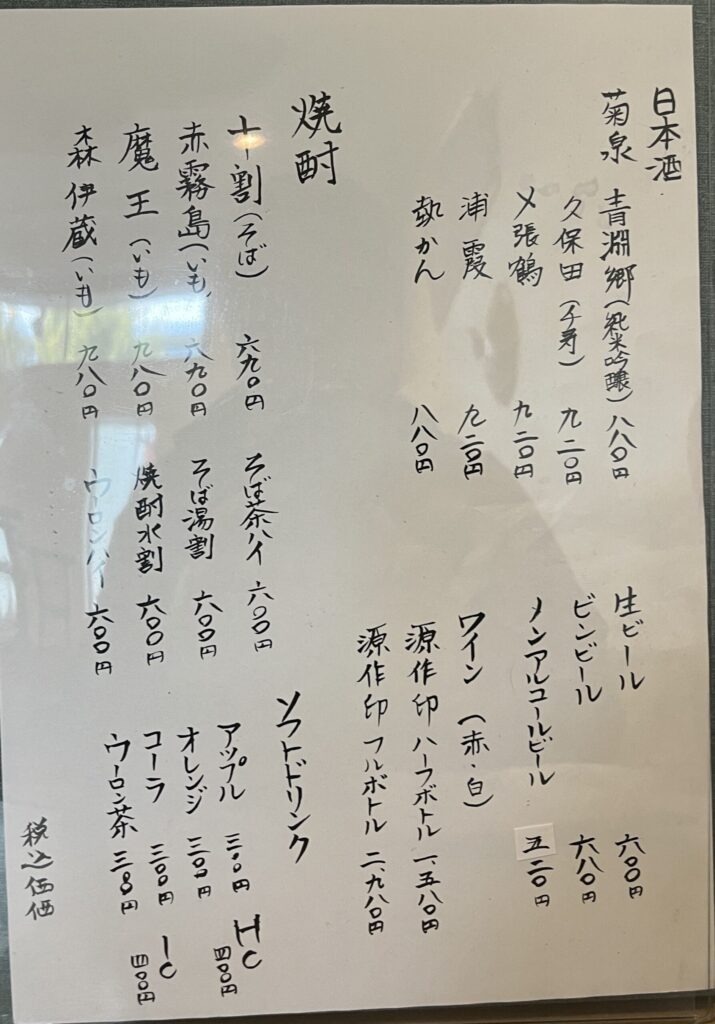 日本酒
菊泉 青淵郷(純米吟醸) 八八〇円
久保田(千寿) 九二〇円
〆張鶴 九二〇円
浦霞 九二〇円
熱かん 八八〇円
生ビール 六〇〇円
ビンビール 六八〇円
ノンアルコールビール 五二〇円
ワイン(赤・白)
源作印 ハーフボトル 一、五八〇円
源作印 フルボトル 二、九八〇円
焼酎
十割(そば) 六九〇円
赤霧島(いも) 六九〇円
魔王(いも) 九八〇円
森伊蔵(いも) 九八〇円
そば茶ハイ 六〇〇円
そば湯割 六〇〇円
焼酎水割 六〇〇円
ウーロンハイ 六〇〇円
ソフトドリンク
アップル 三〇〇円
オレンジ 三〇〇円
コーラ 三〇〇円
ウーロン茶 三〇〇円
HC 四〇〇円
IC 四〇〇円
税込価格